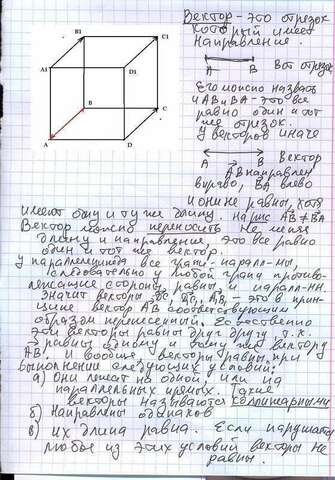 Вектор - это отрезок
который имеет
направление.
B1
C1
A1
D1
B
C
A
D
A B Вот отрезок
Его можно назвать
и AB и BA - это все
равно один и тот
же отрезок.
У векторов иначе
A B Вектор
AB направлен
вправо, BA влево
и они не равны, хотя
имеют одну и ту же длину. На рис AB ≠ BA
Вектор можно переносить не меняя
длину и направление, это все равно
один и тот же вектор.
У параллепипеда все грани - паралл-мы,
следовательно у любой грани противо-
лежащие стороны равны и паралл-ны.
Значит векторы
это в прин-
ципе вектор AB соответствующим
образом перенесенный. Естественно
эти векторы равны друг другу т.к.
равны одному и тому же вектору
AB. И вообще, векторы равны при
выполнении следующих условий:
а) Они лежат на одной, или на
параллельных прямых. Такие
векторы называются коллинеарными
б) Направлены одинаков
в) их длина равна. Если нарушата
любое из этих условий векторы не
равны.